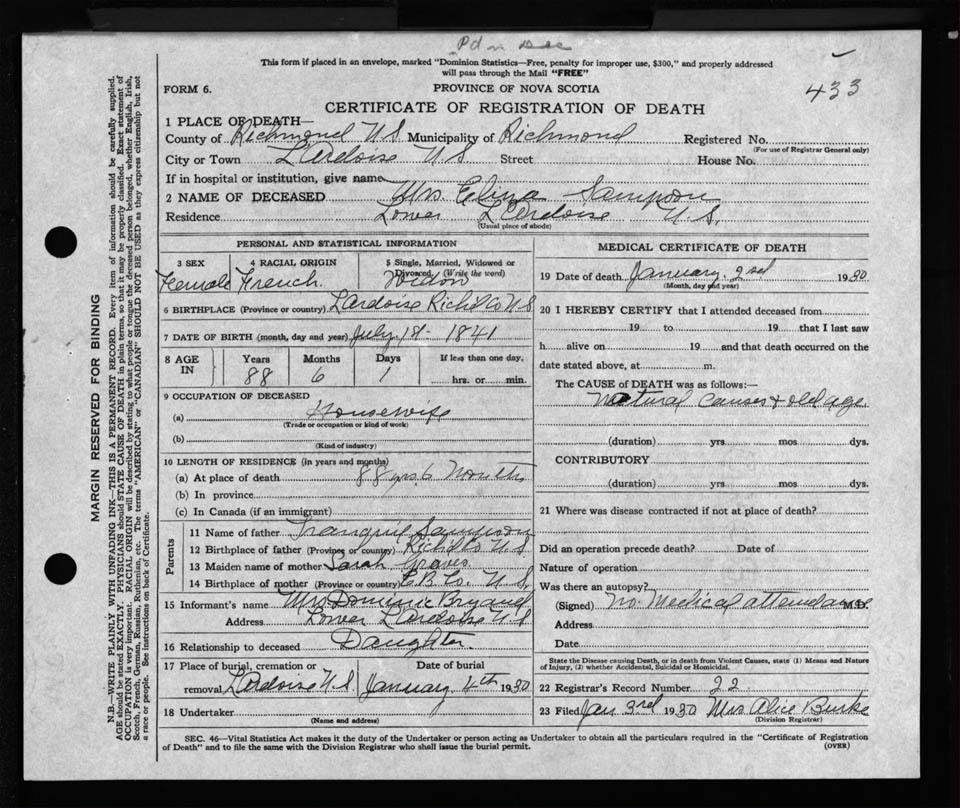 Pd in Dec
This form if placed in an envelope, marked "Dominion Statistics—Free, penalty for improper use, $300," and properly addressed
will pass through the Mail "FREE"
FORM 6.
PROVINCE OF NOVA SCOTIA
433
CERTIFICATE OF REGISTRATION OF DEATH
1 PLACE OF DEATH—
County of Richmond N.S Municipality of Richmond Registered No.
(For use of Registrar General only)
City or Town L'Ardoise N.S Street House No.
If in hospital or institution, give name
2 NAME OF DECEASED Mrs. Elina Sampson
Residence Lower L'Ardoise N.S.
(Usual place of abode)
PERSONAL AND STATISTICAL INFORMATION
3 SEX 4 RACIAL ORIGIN 5 Single, Married, Widowed or Divorced, (Write the word)
Female French. Widow
6 BIRTHPLACE (Province or country) Lardoise Richd Co N.S
7 DATE OF BIRTH (month, day and year) July. 1st- 1841
8 AGE IN Years Months Days If less than one day,
88 6 1 hrs. or min.
9 OCCUPATION OF DECEASED
(a) Housewife
(Trade or occupation or kind of work)
(b)
(Kind of industry)
10 LENGTH OF RESIDENCE (in years and months)
(a) At place of death 88 yrs. 6 Months
(b) In province
(c) In Canada (if an immigrant)
Parents
11 Name of father Tranquil Sampson
12 Birthplace of father (Province or country) Richd Co N.S
13 Maiden name of mother Sarah Graves
14 Birthplace of mother (Province or country) C.B. Co. N.S.
15 Informant's name Mrs Dominic Bryand
Address Lower L'Ardoise N S
16 Relationship to deceased Daughter.
17 Place of burial, cremation or removal Date of burial
L'Ardoise N.S January 4th 1930
18 Undertaker
(Name and address)
MEDICAL CERTIFICATE OF DEATH
19 Date of death January. 2nd 1930
(Month, day and year)
20 I HEREBY CERTIFY that I attended deceased from
19 to 19 that I last saw
h alive on 19 and that death occurred on the
date stated above, at m.
The CAUSE of DEATH was as follows:—
Natural Causes & old age
(duration) yrs mos dys.
CONTRIBUTORY
(duration) yrs mos dys.
21 Where was disease contracted if not at place of death?
Did an operation precede death? Date of
Nature of operation
Was there an autopsy?
(Signed) No Medical attendance M.D.
Address
Date
State the Disease causing Death, or in death from Violent Causes, state (1) Means and Nature
of Injury, (2) whether Accidental, Suicidal or Homicidal.
22 Registrar's Record Number 22
23 Filed Jan 3rd 1930 Mrs Alice Burke
(Division Registrar)
SEC. 46—Vital Statistics Act makes it the duty of the Undertaker or person acting as Undertaker to obtain all the particulars required in the "Certificate of Registration
of Death" and to file the same with the Division Registrar who shall issue the burial permit.
(OVER)
MARGIN RESERVED FOR BINDING
N.B—WRITE PLAINLY WITH UNFADING INK—THIS IS A PERMANENT RECORD. Every item of information should be carefully supplied.
AGE should be stated EXACTLY. PHYSICIANS should STATE CAUSE OF DEATH in plain terms, so that it may be properly classified. Exact statement of
OCCUPATION is very important. RACIAL ORIGIN will be described by stating to what people or tongue the deceased person belonged, whether English, Irish,
Scotch, French, German, Russian, Ruthenian, etc. The terms "AMERICAN" or "CANADIAN" SHOULD NOT BE USED as they express citizenship but not
a race or people. See instructions on back of Certificate.